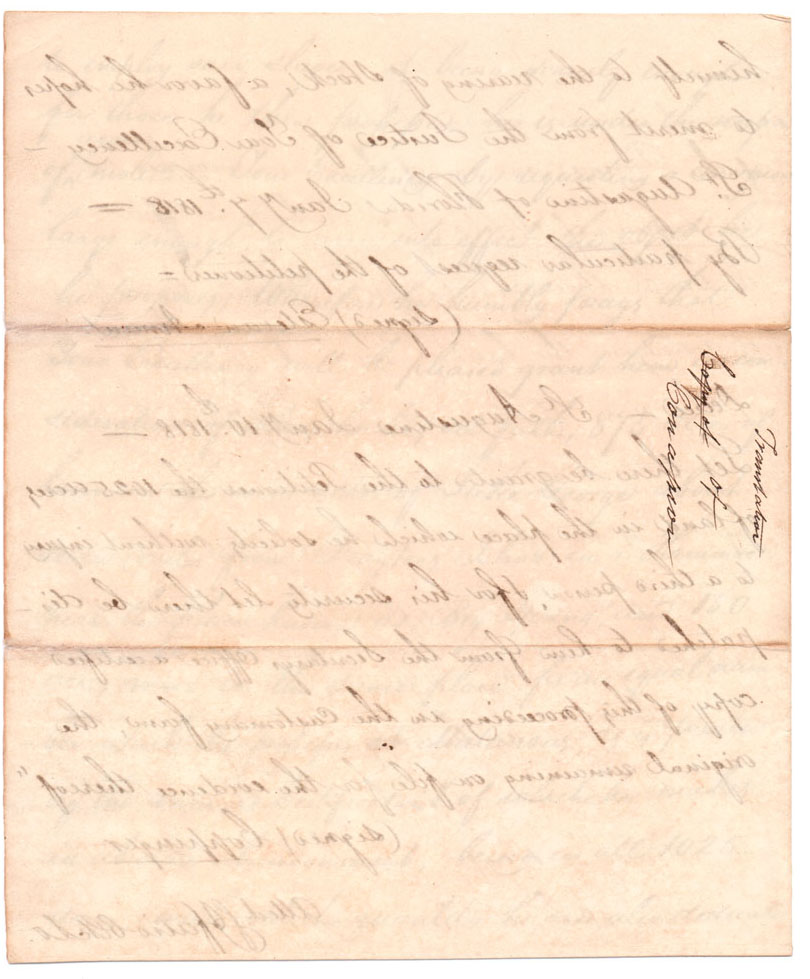 himself to the rearing of Stock, a favor he hopes
to merit from the Justice of Your Excellency —
St. Augustine of Florida Jany 7th. 1818 =
By particular request of the petitioner =
(signed) Estevan
St Augustine Jany 10th. 1818 —
Let there be granted to the Petitioner the 1025 acres
of land in the place which he solicits without injury
to a third person, & for his security let there be des-
patched to him from the Secretarys office a certified
copy of this proceeding in the customary form, the
original remaining on file for the evidence thereof"
(signed) Coppinger
Translation
Copy of of